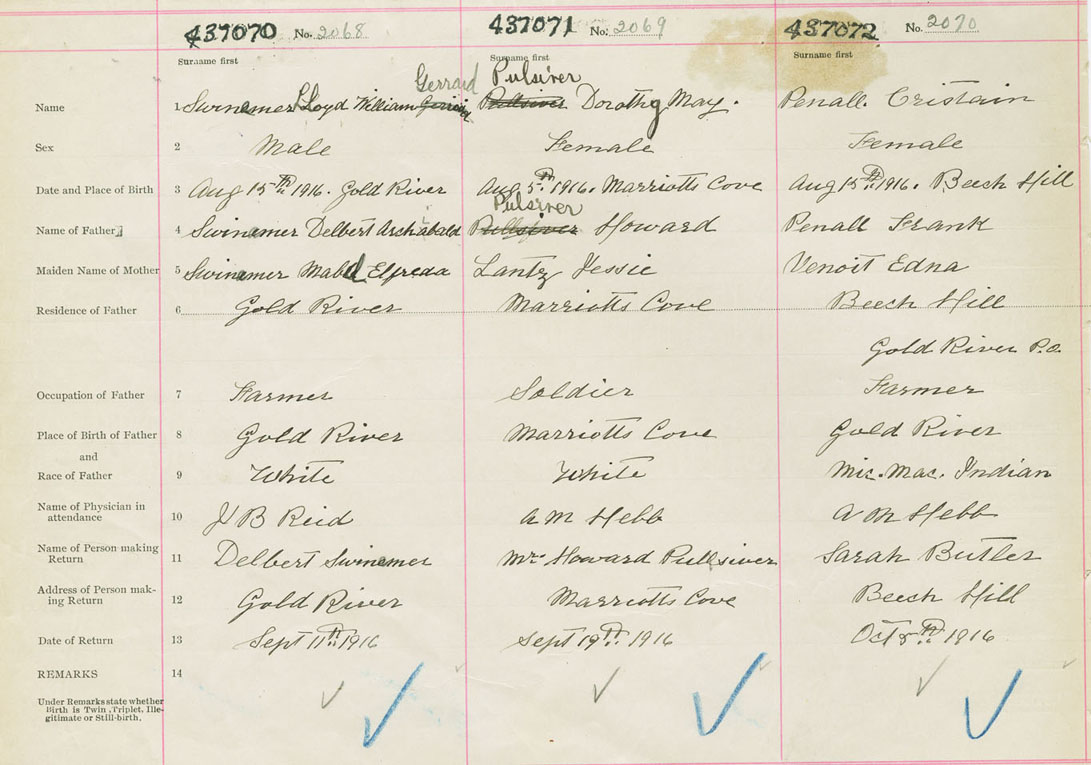 437070 No. 2068 437071 No. 2069 437072 No. 2070
Surname first Surname first Surname first
Gerrard Pulsiver
Name 1 Swinamer Lloyd William Dorothy May. Penall. Cristain
Sex 2 Male Female Female
Date and Place of Birth 3 Aug 15th 1916. Gold River Aug 5th 1916. Marriotts Cove Aug 15th 1916. Beech Hill
Pulsiver
Name of Father 4 Swinamer Delbert Archabald Pullsiver Howard Penall Frank
Maiden Name of Mother 5 Swinamer Mabel Elfreda Lantz Jessie Venoit Edna
Residence of Father 6 Gold River Marriotts Cove Beech Hill
Gold River P.O.
Occupation of Father 7 Farmer Soldier Farmer
Place of Birth of Father 8 Gold River Marriotts Cove Gold River
and
Race of Father 9 White White Mic. Mac. Indian
Name of Physician in
attendance 10 J B Reid A M Hebb A M Hebb
Name of Person making
Return 11 Delbert Swinamer Mrs Howard Pullsiver Sarah Butler
Address of Person mak-
ing Return 12 Gold River Marriotts Cove Beech Hill
Date of Return 13 Sept 11th 1916 Sept 19th 1916 Oct 5th 1916
REMARKS 14
Under Remarks state whether
Birth is Twin, Triplet, Ille-
gitimate or Still-birth.